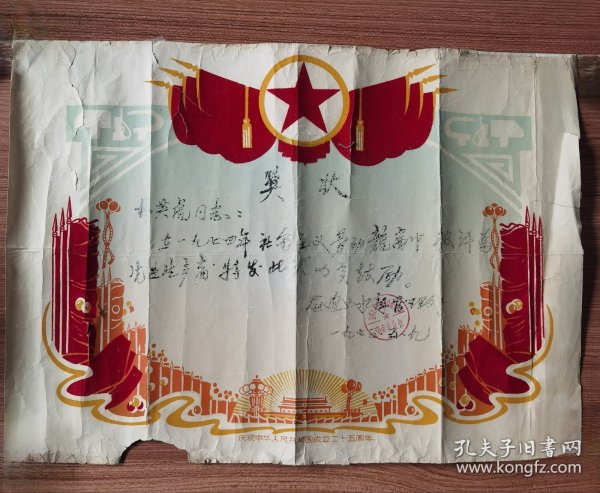 奖状
英虎同志:
在一九七四年社会主义劳动竞赛中 被评为
先进生产者 特发此状以资鼓励。
一九七五
庆祝中华人民共和国成立二十五周年
孔夫子旧书网
www.kongfz.com